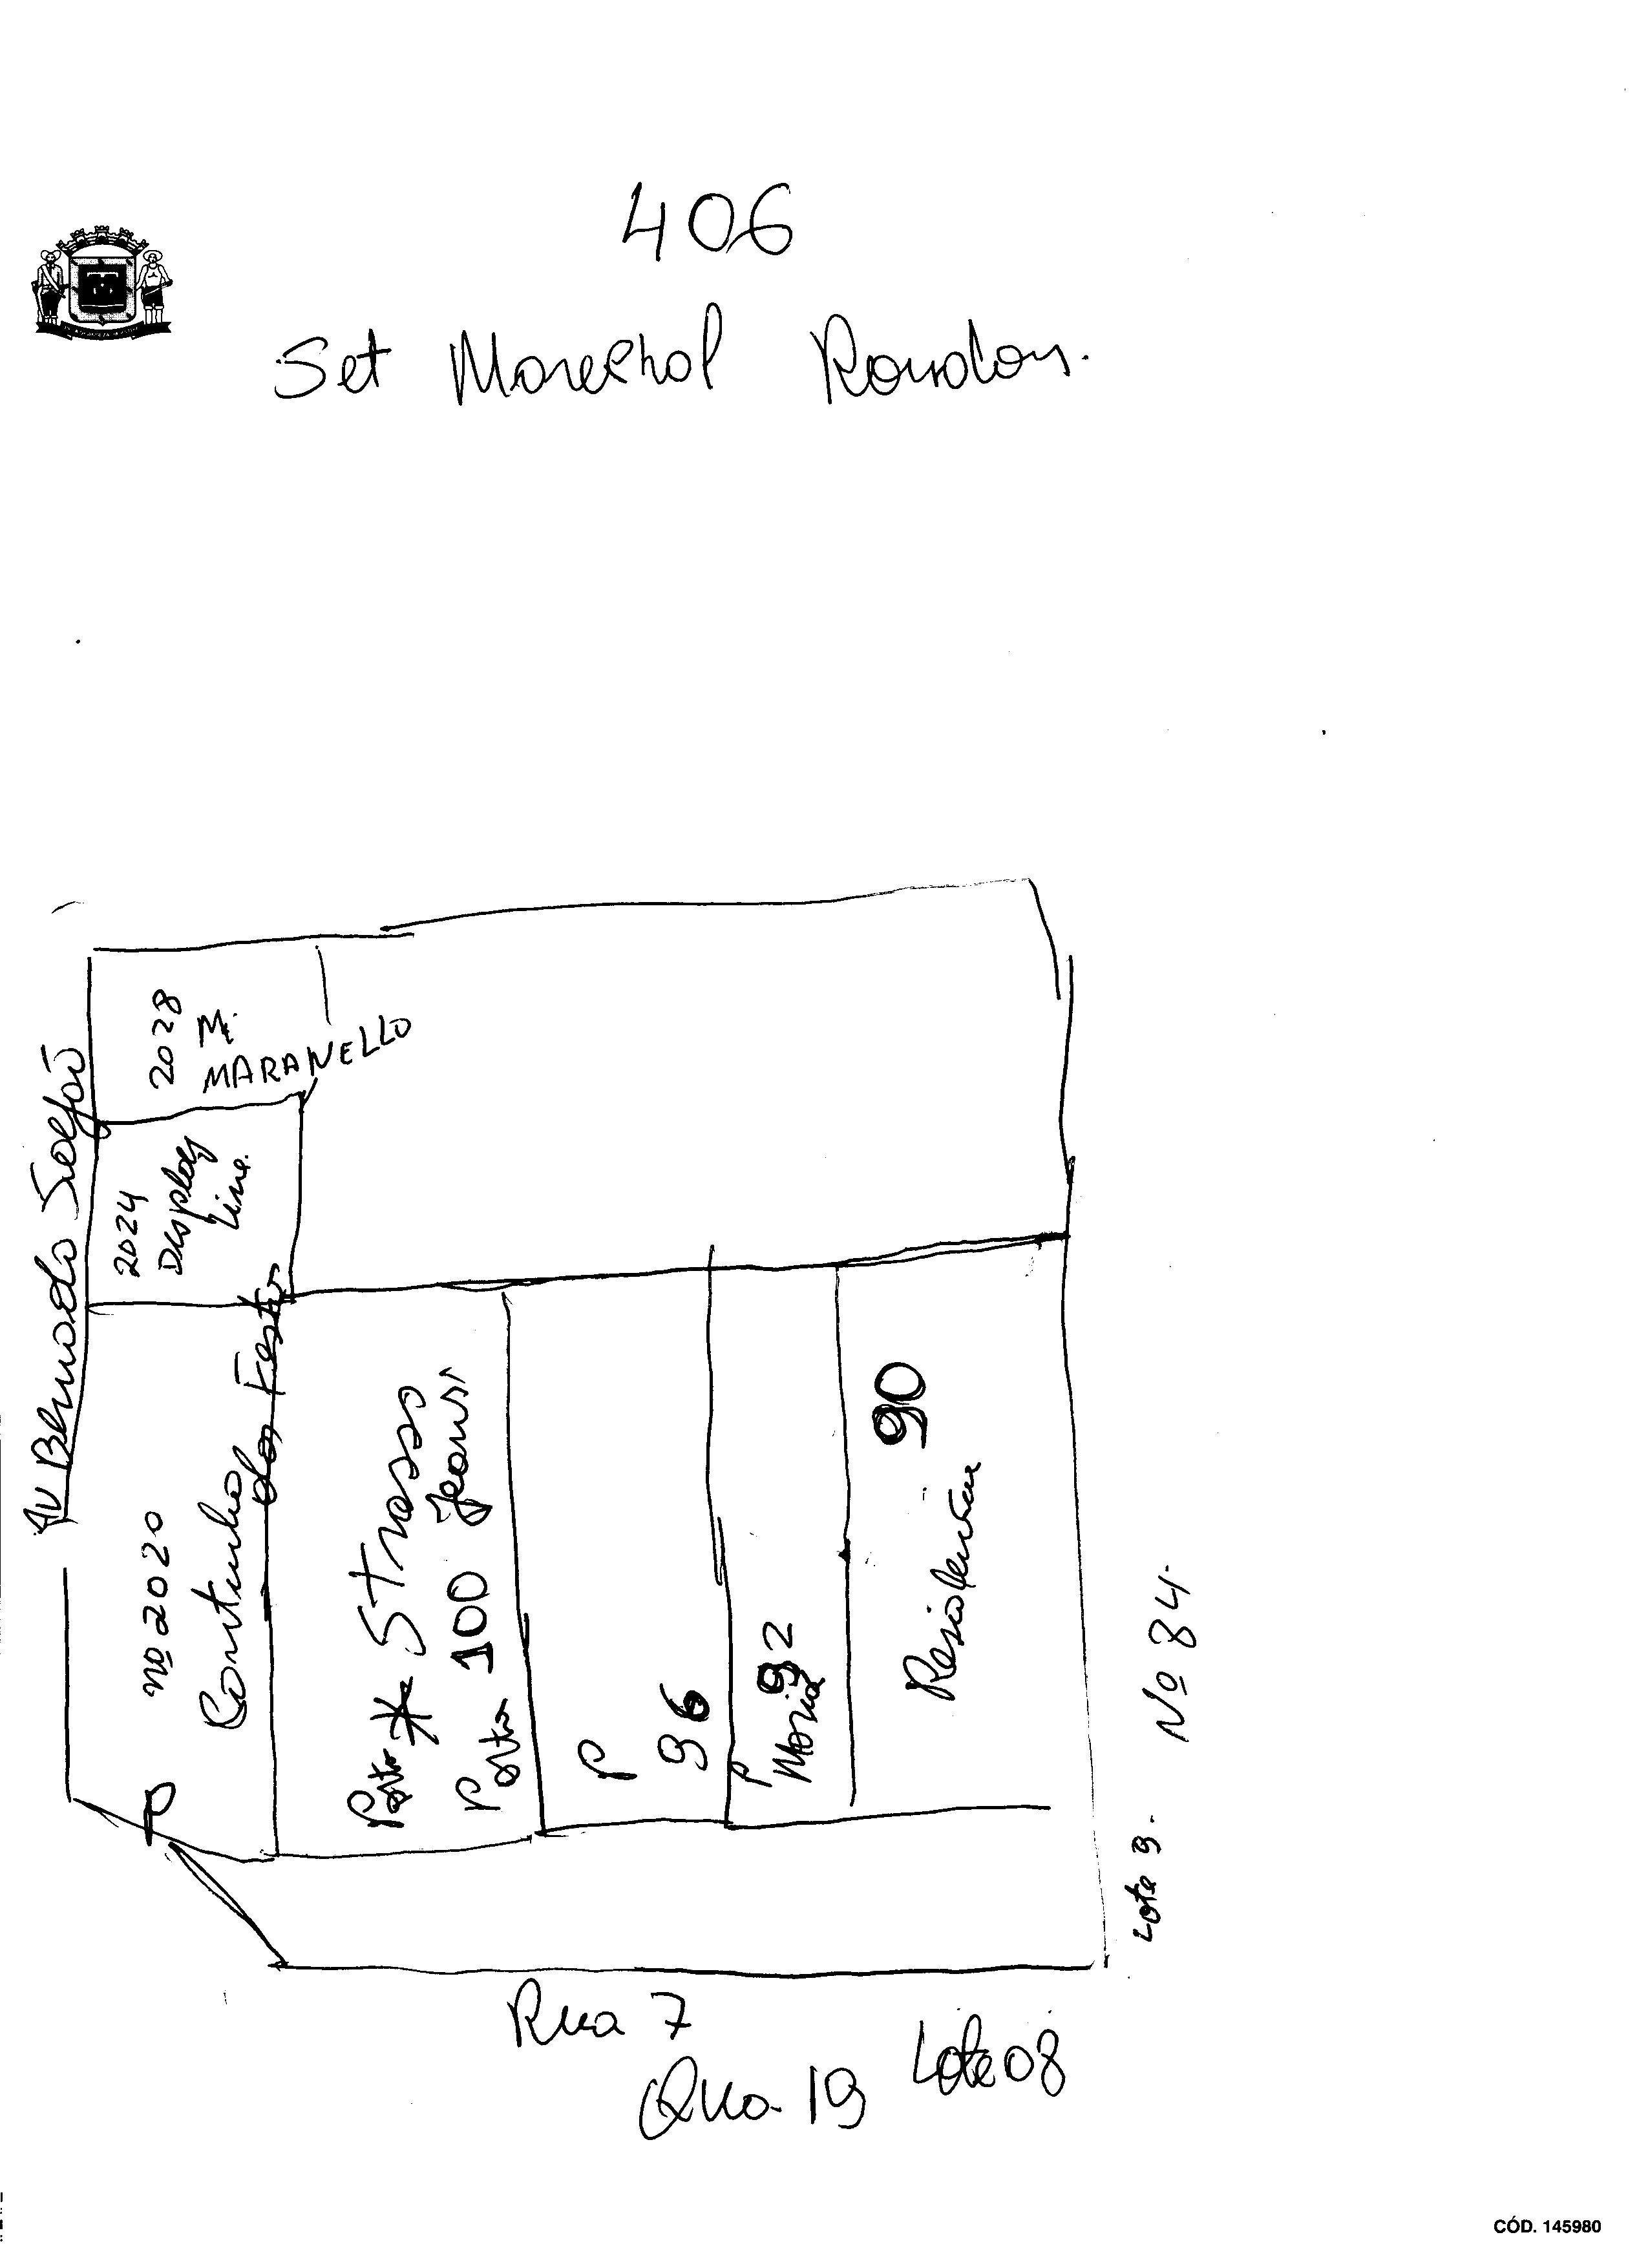 406
Set Marechal Rondon.
Av Bernardo Sayão
2028
M.
MARANELLO
2024
Display
Line.
nº 2020
Cantinho
das Festas
P
Porta * Strasso
Jeans
Porta 100
P
96
P
92
Maria
90
Residência
Nº 84.
Lote 9.
Rua 7
Qua. 19 Lote 08
CÓD. 145980